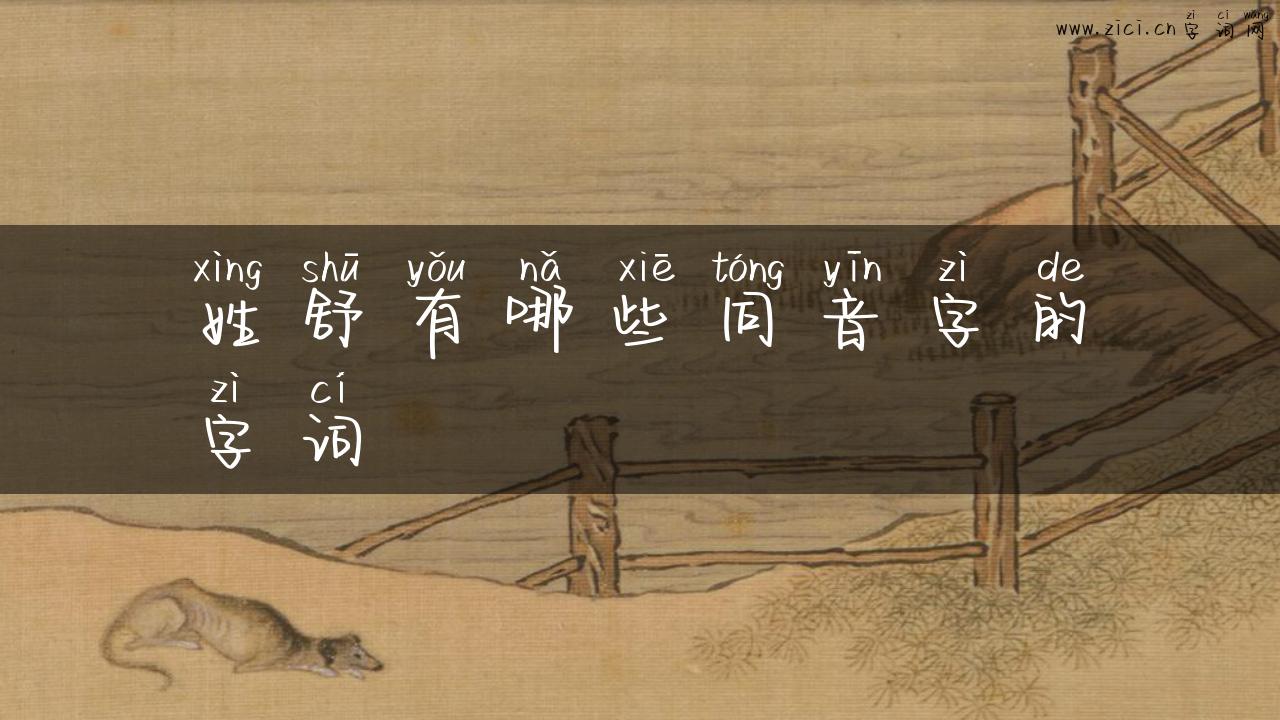 zì cí wǎng
www.zici.cn 字词网
xìng shū yǒu nǎ xiē tóng yīn zì de
姓舒有哪些同音字的
zì cí
字词